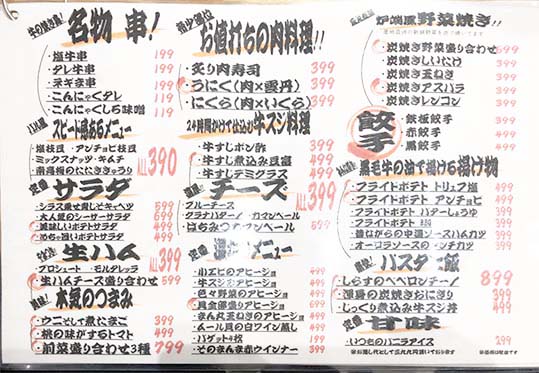 名物 串!
・塩牛串 199
・タレ牛串 199
・ネギま串 199
・こんにゃくタレ 199
・こんにゃくしち味噌 199
スピード感あるメニュー
・塩枝豆・アンチョビ枝豆
・ミックスナッツ・キムチ
ALL 390
定番 サラダ
・シラス乗せ青じそキャベツ 399
・大人気のシーザーサラダ 399
・美味しいポテトサラダ 499
生ハム
・プロシュート ・モルタデッラ
ALL 399
・生ハムチーズ盛り合わせ 599
本気のつまみ
・ウニそして煮たまご 399
・桃の味がするトマト 499
・前菜盛り合わせ3種 799
希少部位
お値打ちの肉料理!!
・炙り肉寿司 399
・うにく(肉×雲丹) 399
・にくら(肉×いくら) 399
24時間かけて仕込む牛スジ料理
・牛すじポン酢 399
・牛すじ煮込み豆腐 499
・牛すじデミグラス 499
チーズ
・ブルーチーズ
・カマンベール
・はちみつ
ALL 599
定番 メニュー
・小エビのアヒージョ 499
・牛スジのアヒージョ
・色々野菜のアヒージョ
・具全部盛りのアヒージョ
・まん丸玉ねぎのアヒージョ
・ムール貝の白ワイン蒸し 499
・バゲット4枚 199
・そのまんま赤ウインナー 399
炉端風野菜焼き!!
・炭焼き野菜盛り合わせ 699
・炭焼きしいたけ 399
・炭焼き玉ねぎ 399
・炭焼きアスパラ 399
・炭焼きレンコン 399
餃子
・鉄板餃子 399
・赤餃子 499
・黒餃子 499
黒毛牛の油で揚げる揚げ物
・フライドポテト トリュフ塩 499
・フライドポテト アンチョビ 499
・フライドポテト バターしょうゆ 399
・昔ながらの中濃ソースハムカツ
・オーロラソースのメンチカツ
パスタご飯
・しらすのペペロンチーノ 899
・渾身の炭焼きおにぎり 399
・じっくり煮込み牛スジ丼 499
定番 甘味
・いつものバニラアイス 299